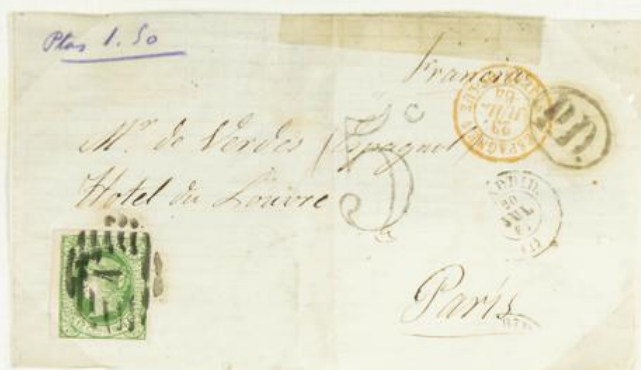 Ptas 1.50
Francia
Mr. de Verdes (Espagnol)
Hotel du Louvre
5c
MADRID
20
JUL
París